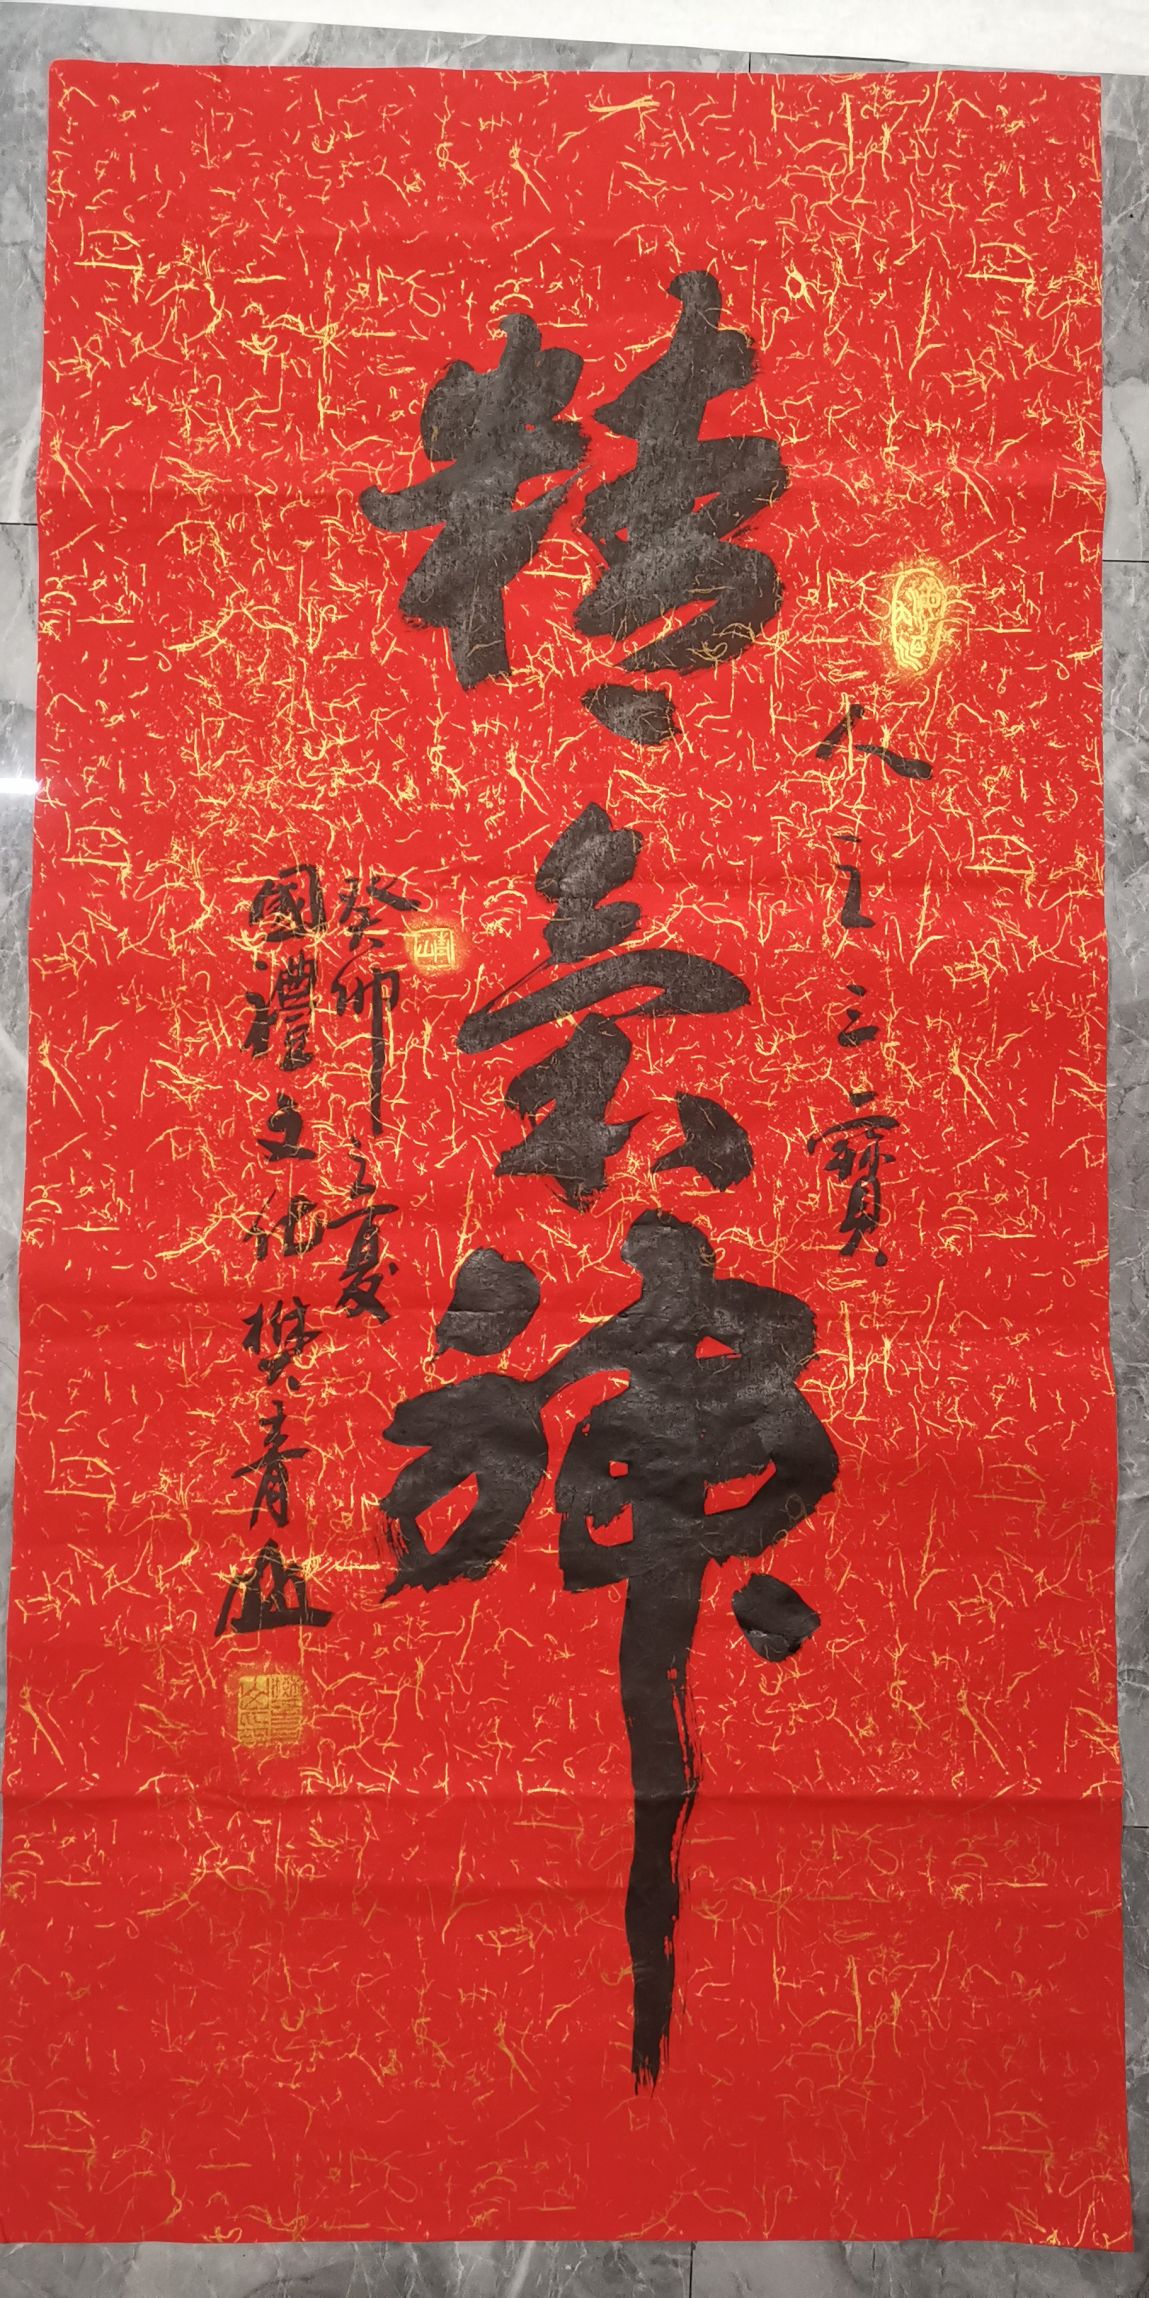 人之三寶
精氣神
癸卯之夏
國禮文化樊青山
青山